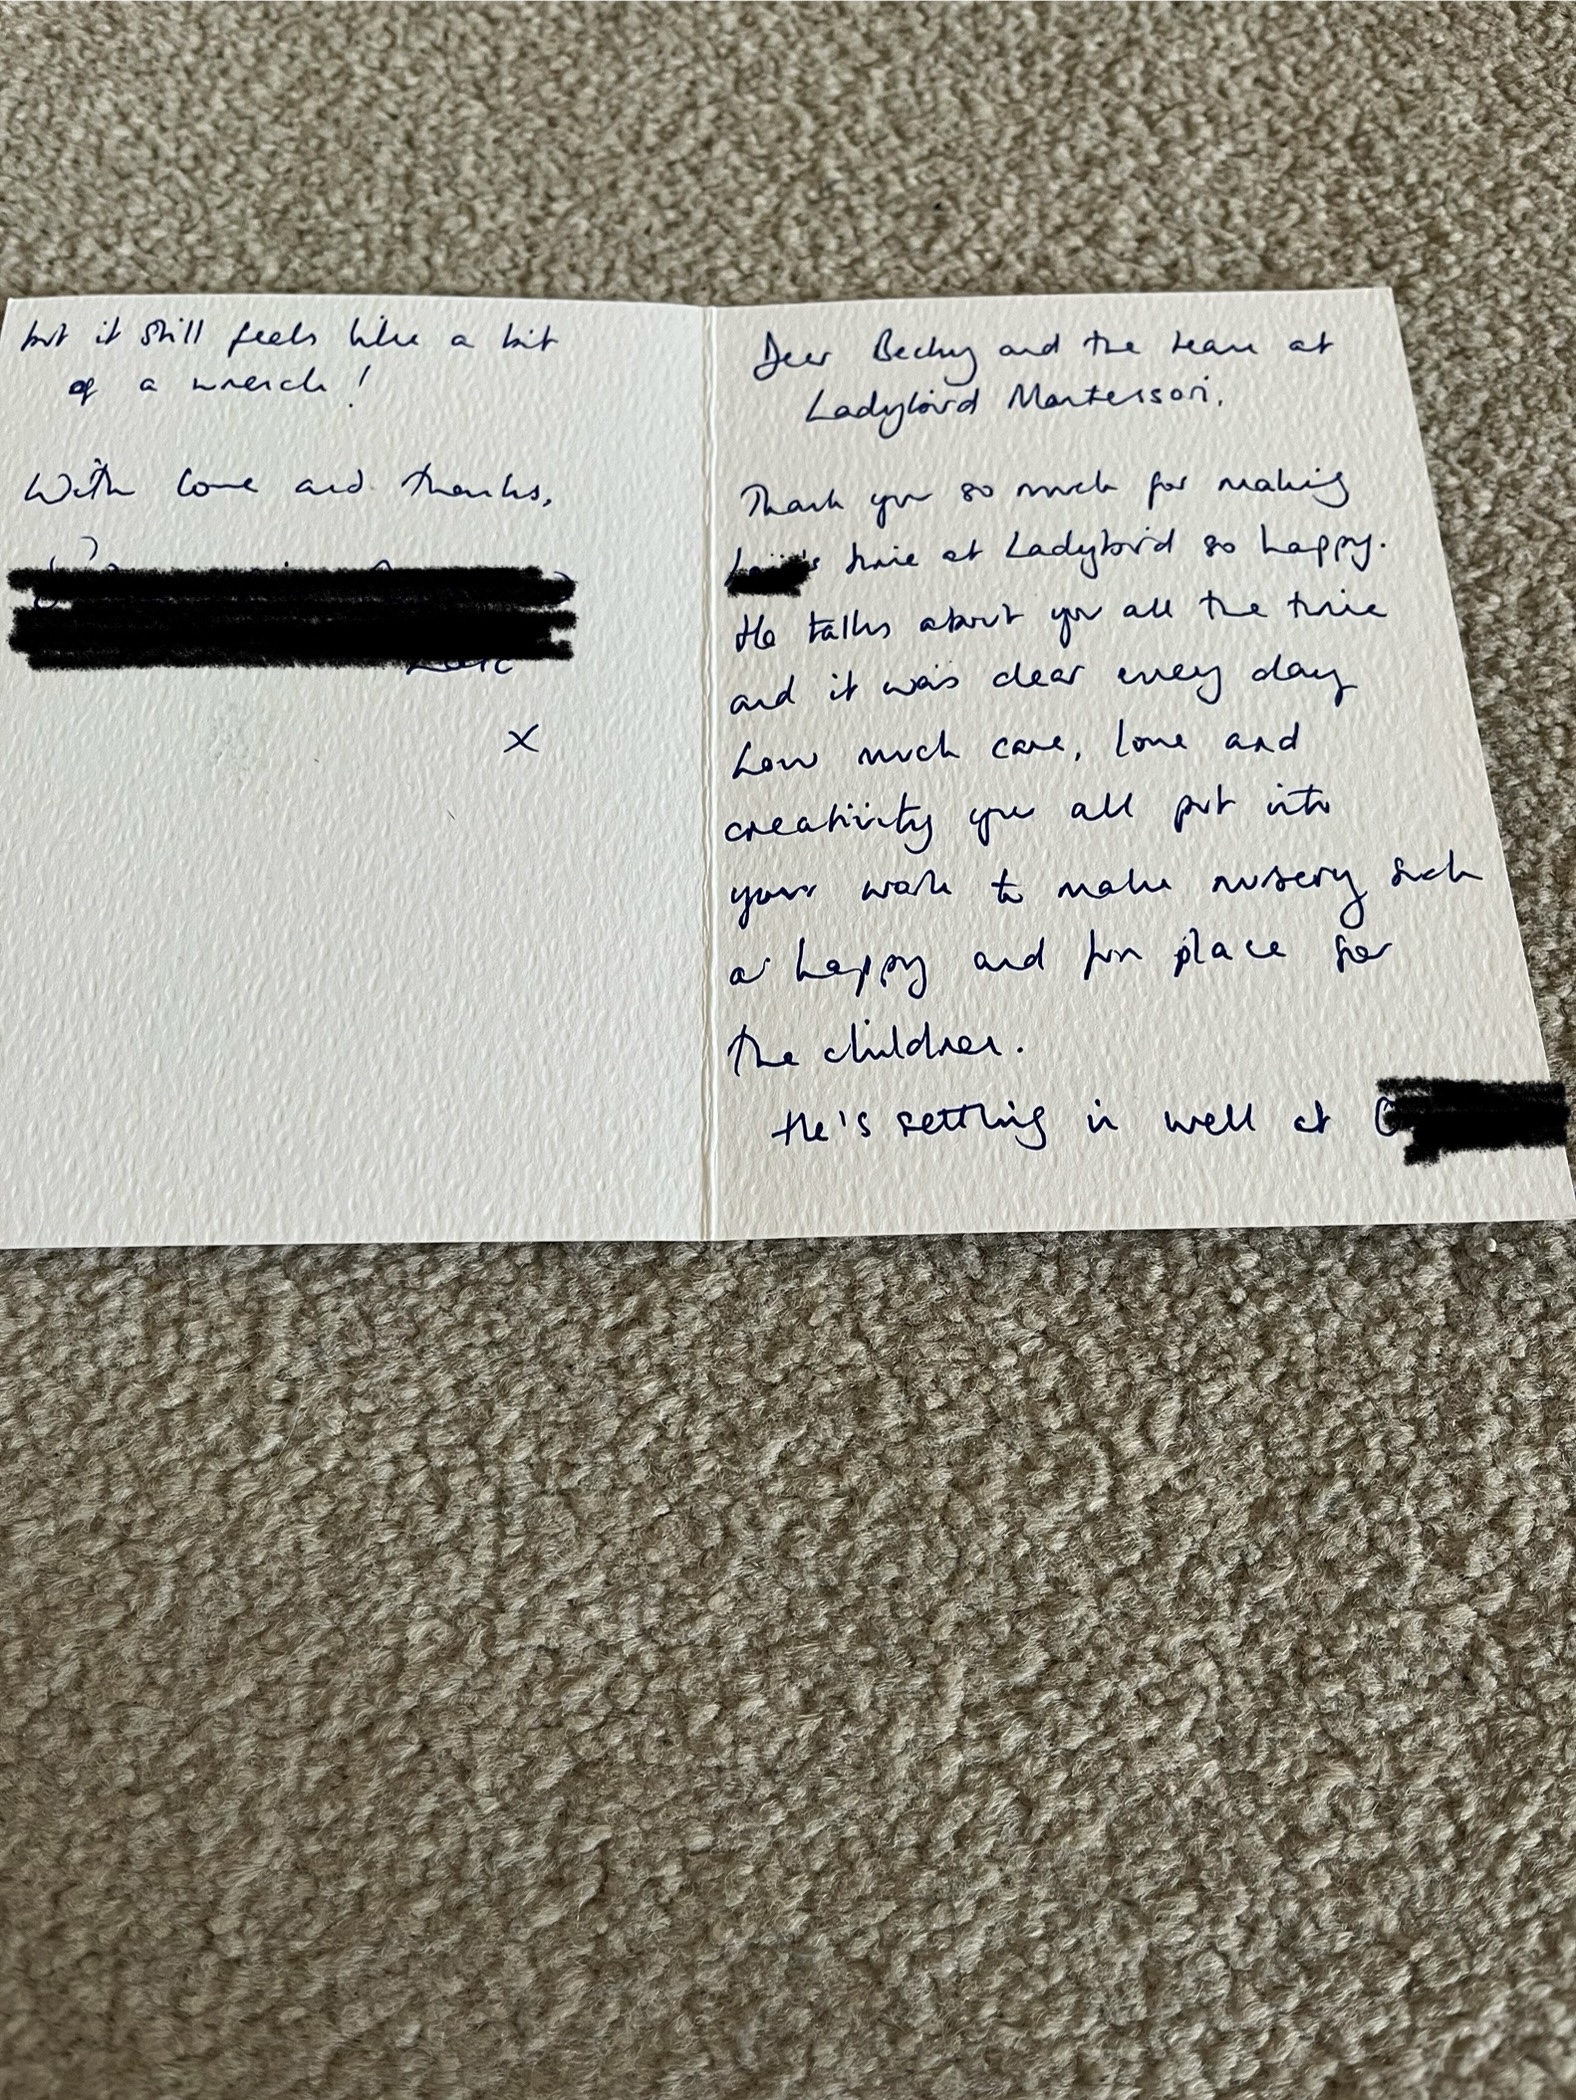 Dear Becky and the team at
Ladybird Montessori,
Thank you so much for making
time at Ladybird so happy.
He talks about you all the time
and it was clear every day
how much care, love and
creativity you all put into
your work to make nursery such
a happy and fun place for
the children.
He's settling in well at
but it still feels like a bit
of a wrench!
With love and thanks,
X